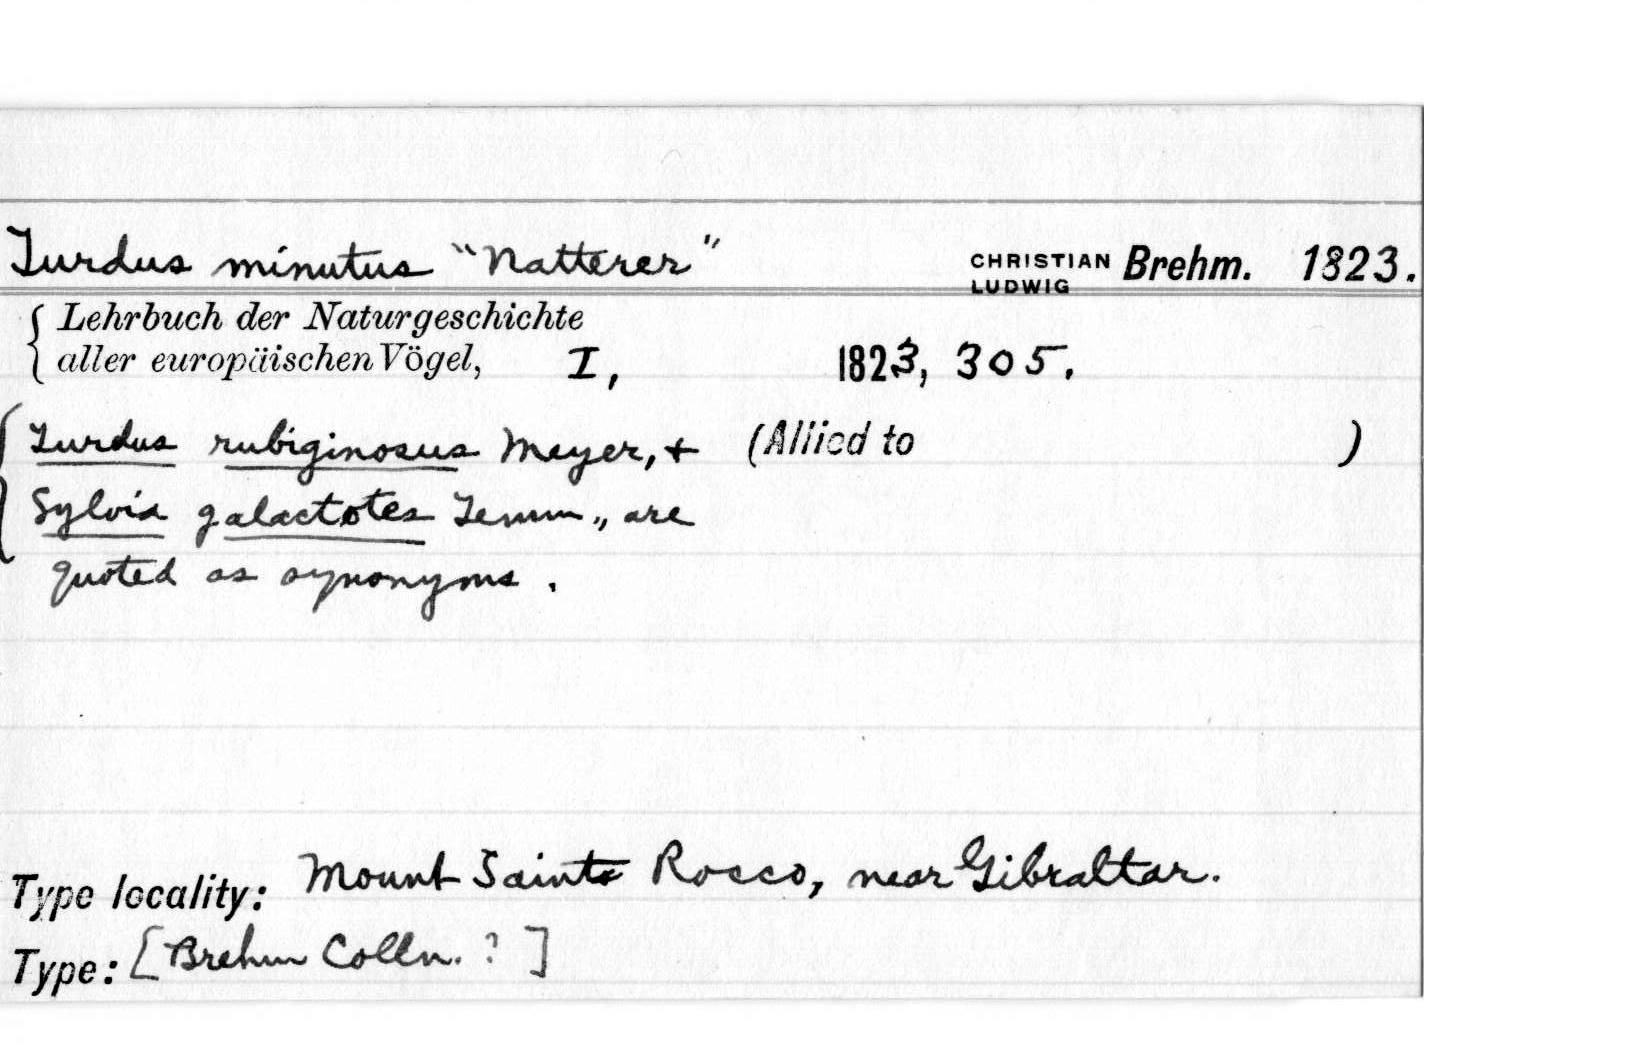 Turdus minutus "Natterer" CHRISTIAN LUDWIG Brehm. 1823.
Lehrbuch der Naturgeschichte
aller europäischen Vögel, I, 1823, 305.
Turdus rubiginosus Meyer, + (Allied to )
Sylvia galactotes Temm., are
quoted as synonyms.
Type locality: Mount Saint Rocco, near Gibraltar.
Type: [Brehm Colln. ?]